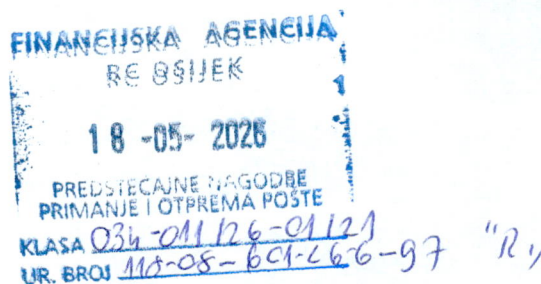 FINANCIJSKA AGENCIJA
RC OSIJEK
18 -05- 2026
PREDSTEČAJNE NAGODBE
PRIMANJE I OTPREMA POŠTE
KLASA 034-011/26-01/21
UR. BROJ
"R"